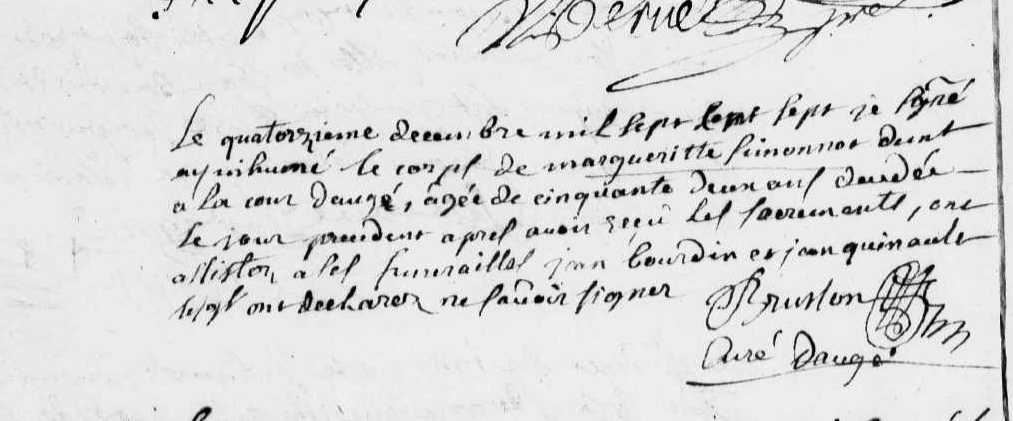 Le quatorzieme decembre mil sept cent sept je signé
ay inhumé le corps de margueritte simonnot
a la cour daugé, agée de cinquante deux ans decedée
le jour precedent apres avoir reçu les sacrements, ont
assistez a ses funerailles jean bourdin et jean quinault
lesqls ont declarez ne savoir signer
Brusson
Curé daugé